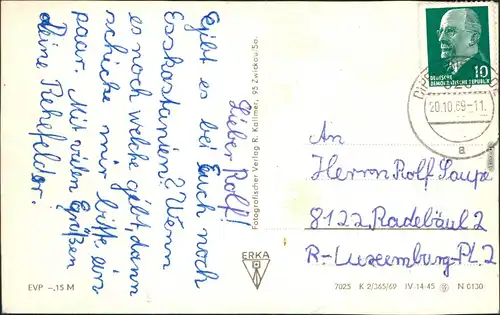 Lieber Rolf!
Gibt es bei Euch noch
Esskastanien? Wenn
es noch welche gibt, dann
schicke mir bitte ein
paar. Mit vielen Grüßen
deine Rehefelder.
Fotografischer Verlag R. Kallmer, 95 Zwickau/Sa.
EVP –,15 M
ERKA
DEUTSCHE
DEMOKRATISCHE REPUBLIK
10
20.10.69-11
a
An
Herrn Rolf Saupe
8122 Radebeul 2
R-Luxemburg-Pl. 2
7025 K 2/365/69 IV-14-45 N 0130